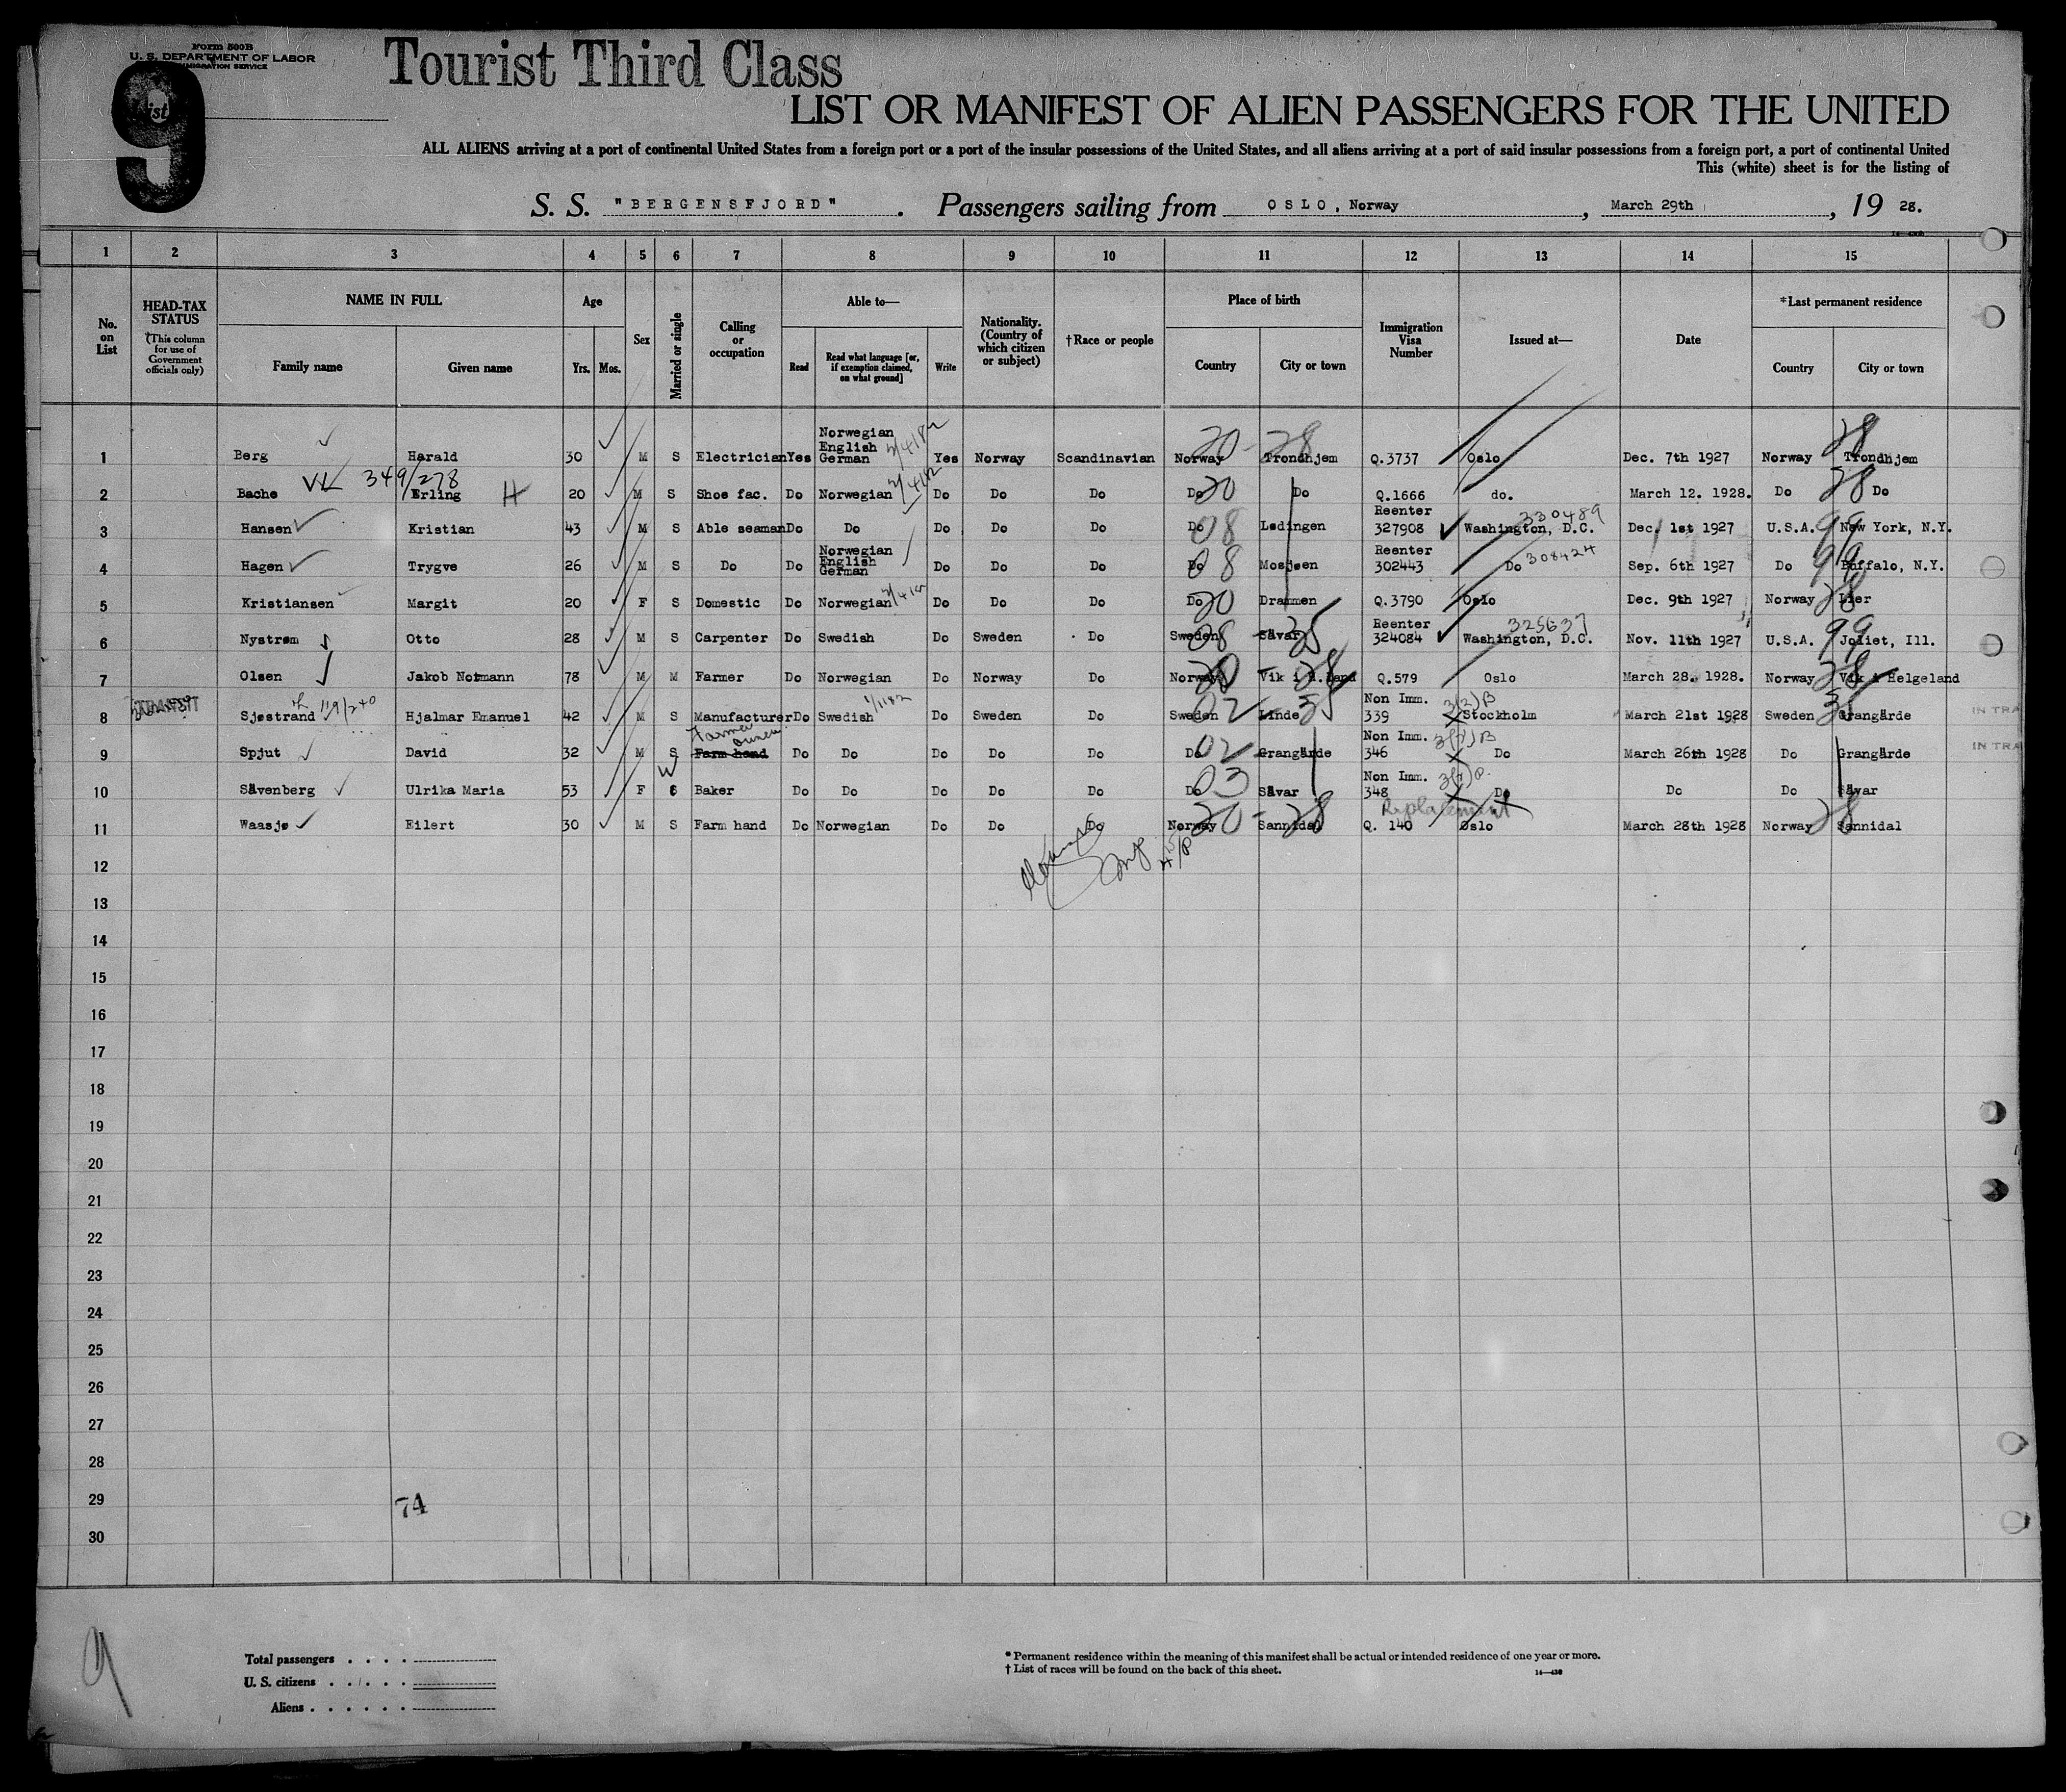 Form 500B
U. S. DEPARTMENT OF LABOR
IMMIGRATION SERVICE
List 9
Tourist Third Class
LIST OR MANIFEST OF ALIEN PASSENGERS FOR THE UNITED
ALL ALIENS arriving at a port of continental United States from a foreign port or a port of the insular possessions of the United States, and all aliens arriving at a port of said insular possessions from a foreign port, a port of continental United
This (white) sheet is for the listing of
S. S. "BERGENSFJORD". Passengers sailing from OSLO, Norway, March 29th, 19 28.
1 2 3 4 5 6 7 8 9 10 11 12 13 14 15
No. on List
HEAD-TAX STATUS
(This column for use of Government officials only)
NAME IN FULL
Family name
Given name
Age
Yrs.
Mos.
Sex
Married or single
Calling or occupation
Able to—
Read
Read what language [or, if exemption claimed, on what ground]
Write
Nationality. (Country of which citizen or subject)
†Race or people
Place of birth
Country
City or town
Immigration Visa Number
Issued at—
Date
*Last permanent residence
Country
City or town
1 Berg Harald 30 M S Electrician Yes Norwegian English German Yes Norway Scandinavian Norway 20-28 Trondhjem Q.3737 Oslo Dec. 7th 1927 Norway 28 Trondhjem
2 Bache 349/278 Erling H 20 M S Shoe fac. Do Norwegian Do Do Do Do 20 Do Q.1666 do. March 12. 1928. Do 28 Do
3 Hansen Kristian 43 M S Able seaman Do Do Do Do Do Do 08 Lødingen Reenter 327908 Washington, D.C. 330489 Dec. 1st 1927 U.S.A. 99 New York, N.Y.
4 Hagen Trygve 26 M S Do Do Norwegian English German Do Do Do Do 08 Mosjøen Reenter 302443 Do 308424 Sep. 6th 1927 Do 99 Buffalo, N.Y.
5 Kristiansen Margit 20 F S Domestic Do Norwegian Do Do Do Do 20 Drammen Q.3790 Oslo Dec. 9th 1927 Norway 28 Lier
6 Nystrøm Otto 28 M S Carpenter Do Swedish Do Sweden Do Sweden 08 Sävar 35 Reenter 324084 Washington, D.C. 325637 Nov. 11th 1927 U.S.A. 99 Joliet, Ill.
7 Olsen Jakob Notmann 78 M M Farmer Do Norwegian Do Norway Do Norway 20 Vik i H.land 28 Q.579 Oslo March 28. 1928. Norway 28 Vik i Helgeland
8 Sjøstrand 119/240 Hjalmar Emanuel 42 M S Manufacturer Do Swedish Do Sweden Do Sweden 02 Linde 35 Non Imm. 339 3(2)B Stockholm March 21st 1928 Sweden 35 Grangärde IN TRA
9 Spjut David 32 M S Farm hand Farmer owner Do Do Do Do Do Do 02 Grangärde Non Imm. 346 3(2)B Do March 26th 1928 Do Grangärde IN TRA
10 Sävenberg Ulrika Maria 53 F W Baker Do Do Do Do Do Do 03 Sävar Non Imm. 348 Do Do Do Sävar
11 Waasjø Eilert 30 M S Farm hand Do Norwegian Do Do Do Norway 20-28 Sannidal Replacement Q. 140 Oslo March 28th 1928 Norway 28 Sannidal
12
13
14
15
16
17
18
19
20
21
22
23
24
25
26
27
28
29
74
30
9
Total passengers . . . .
U. S. citizens . . . . .
Aliens . . . . . .
* Permanent residence within the meaning of this manifest shall be actual or intended residence of one year or more.
† List of races will be found on the back of this sheet.
14—430